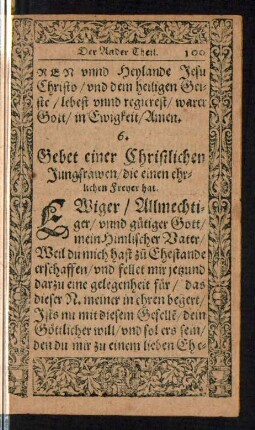 Der Ander Theil. 100
REN vnnd Heylande Jesu
Christo / vnd dem heiligen Gei-
ste / lebest vnnd regierest / warer
Gott / in Ewigkeit / Amen.
6.
Gebet einer Christlichen
Jungfrawen / die einen ehr-
lichen Freyer hat.
EWiger / Allmechti-
ger / vnnd gütiger Gott /
mein Himlischer Vater /
Weil du mich hast zū Ehestande
erschaffen / vnd fellet mir jetzund
darzu eine gelegenheit für / das
dieser N. meiner in ehren begert /
Ists nu mit diesem Gesellē / dein
Göttlicher will / vnd sol ers sein /
den du mir zu einem lieben Ehe-